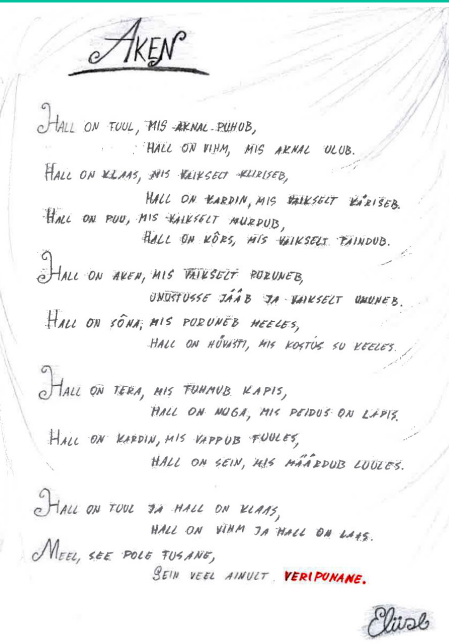 AKEN
HALL ON TUUL, MIS AKNAL PUHUB,
HALL ON VIHM, MIS AKNAL ULUB.
HALL ON KLAAS, MIS VAIKSELT KLIRISEB,
HALL ON KARDIN, MIS VAIKSELT KÄRISEB.
HALL ON PUU, MIS VAIKSELT MURDUB,
HALL ON KÕRS, MIS VAIKSELT PAINDUB.
HALL ON AKEN, MIS VAIKSELT PURUNEB,
UNUSTUSSE JÄÄB JA VAIKSELT UNUNEB.
HALL ON SÕNA, MIS PURUNEB MEELES,
HALL ON HÜVASTI, MIS KOSTUS SU KEELES.
HALL ON TERA, MIS TUHMUB KAPIS,
HALL ON NUGA, MIS PEIDUS ON LAPIS.
HALL ON KARDIN, MIS VAPPUB TUULES,
HALL ON SEIN, MIS MÄÄRDUB LUULES.
HALL ON TUUL JA HALL ON KLAAS,
HALL ON VIHM JA HALL ON LAAS.
MEEL, SEE POLE TUSANE,
SEIN VEEL AINULT VERIPUNANE.